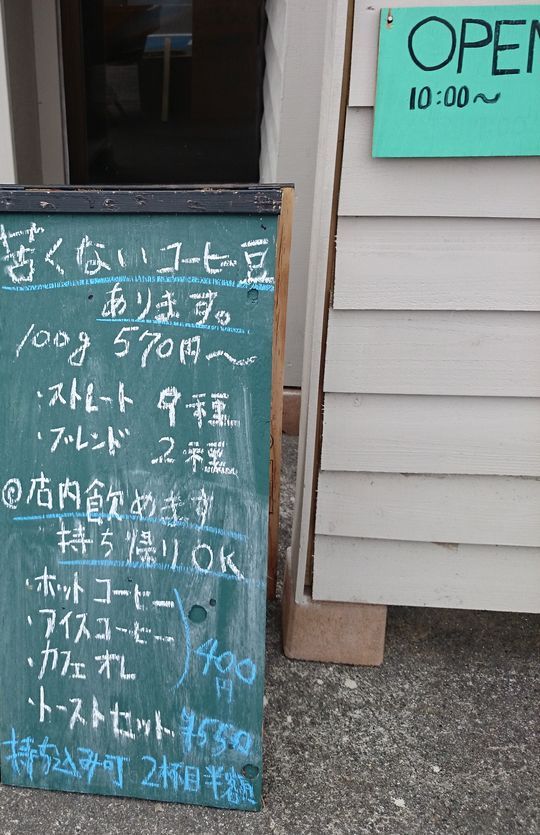 OPEN
10:00〜
苦くないコーヒー豆
あります。
100g 570円〜
・ストレート 9種
・ブレンド 2種
◎店内飲めます
持ち帰りOK
・ホットコーヒー
・アイスコーヒー
・カフェオレ
400円
・トーストセット ¥550
持ち込み可 2杯目半額